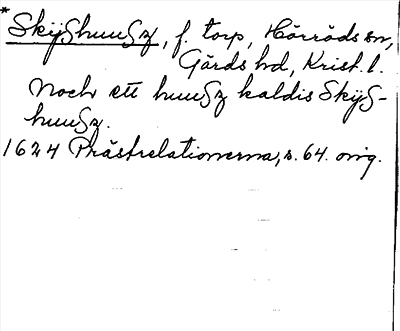 * Skÿshuusz, f. torp, Hörröds sn,
Gärds hd, Krist. l.
Noch ett huusz kaldis Skÿs-
huusz.
1624 Prästrelationerna, s. 64. orig.